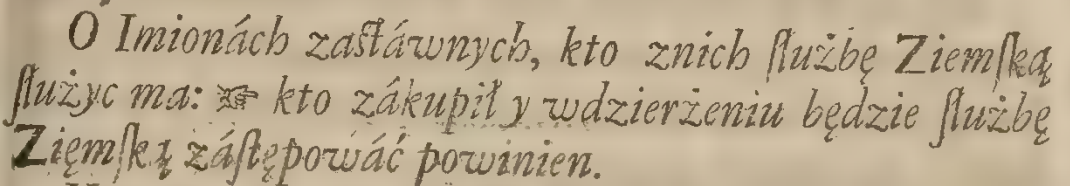 O Imionách zaſtáwnych, kto znich ſłużbę Ziemſką
ſłużyc ma: ☞ kto zákupił y wdzierżeniu będzie ſłużbę
Zięmſką záſtępowáć powinien.